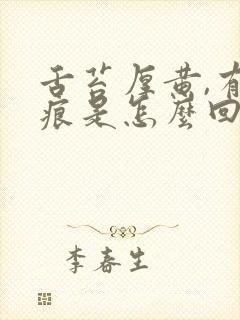 舌苔厚黄,有
痕是怎麽回
李春生